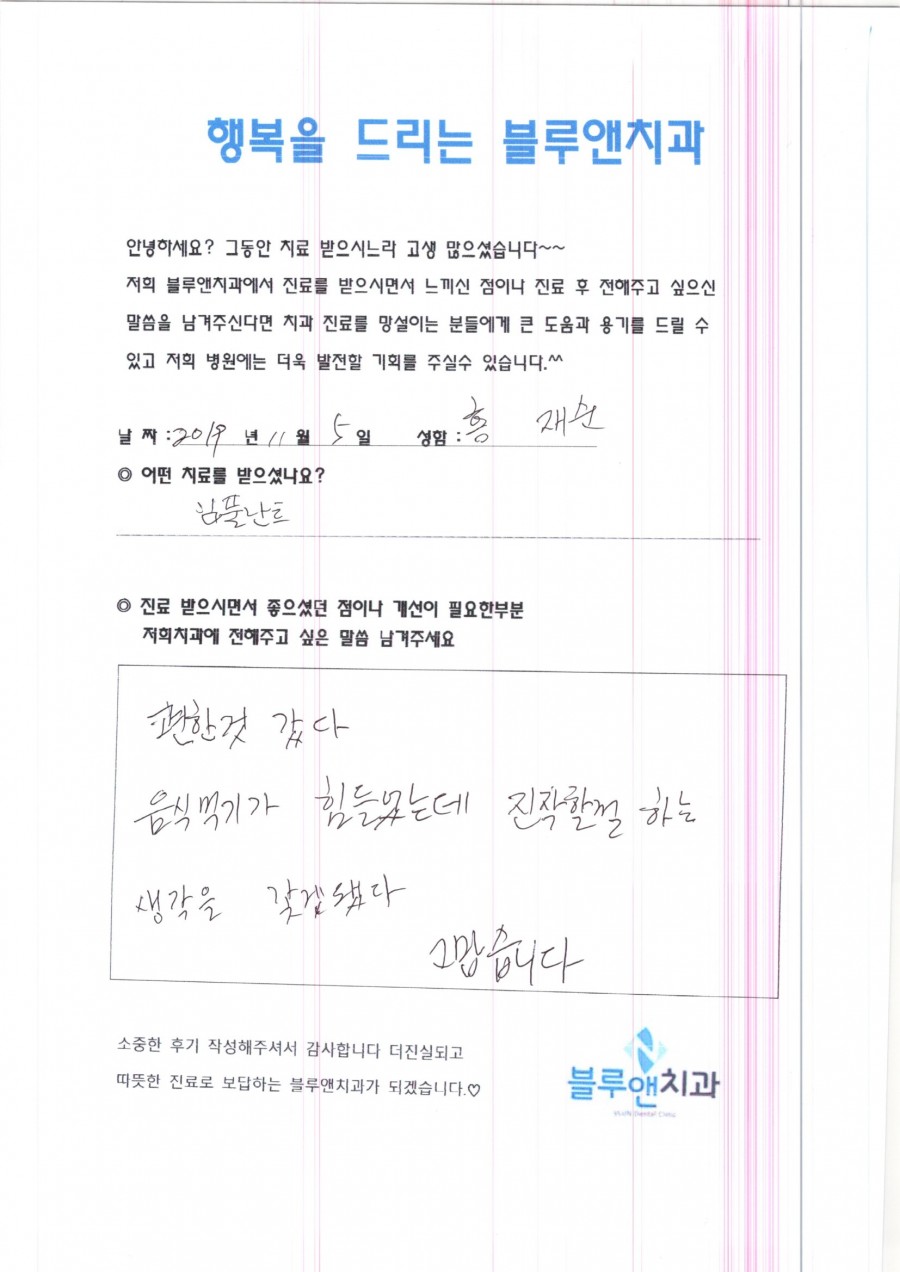 행복을 드리는 블루앤치과
안녕하세요? 그동안 치료 받으시느라 고생 많으셨습니다~~
저희 블루앤치과에서 진료를 받으시면서 느끼신 점이나 진료 후 전해주고 싶으신
말씀을 남겨주신다면 치과 진료를 망설이는 분들에게 큰 도움과 용기를 드릴 수
있고 저희 병원에는 더욱 발전할 기회를 주실수 있습니다.^^
날 짜 : 2019 년 11 월 5 일 성함 : 홍 재순
◎ 어떤 치료를 받으셨나요?
임풀란트
◎ 진료 받으시면서 좋으셨던 점이나 개선이 필요한부분
저희치과에 전해주고 싶은 말씀 남겨주세요
편한것 갔다
음식먹기가 힘들었는데 진작할껄 하는
생각을 갖게됐다
고맙습니다
소중한 후기 작성해주셔서 감사합니다 더진실되고
따뜻한 진료로 보답하는 블루앤치과가 되겠습니다.♡
블루앤치과